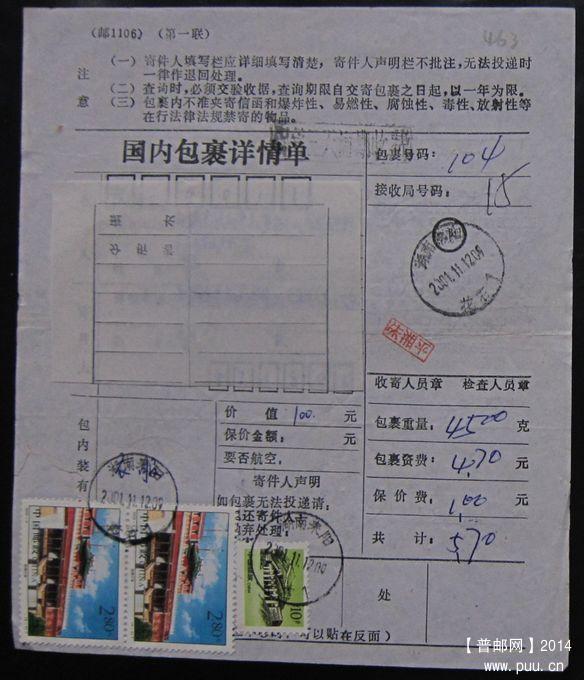 (邮1106) (第一联)
463
注意
(一) 寄件人填写栏应详细填写清楚, 寄件人声明栏不批注, 无法投递时
一律作退回处理。
(二) 查询时, 必须交验收据, 查询期限自交寄包裹之日起, 以一年为限。
(三) 包裹内不准夹寄信函和爆炸性、易燃性、腐蚀性、毒性、放射性等
在行法律法规禁寄的物品。
国内包裹详情单
包裹号码: 104
接收局号码: 15
2001.11.12.09
收寄人员章 检查人员章
价 值 100. 元
包裹重量: 4500 克
保价金额: 元
包裹资费: 4.70 元
要否航空:
保 价 费: 1.00 元
寄件人声明
共 计: 5.70 元
包内装有
如包裹无法投递请:
退还寄件人
抛弃处理:
2001.11.12.09
湖南耒阳
2001.11.12.09
中国邮政
2.80
中国邮政
2.80
10
处
可以贴在反面)
【普邮网】2014
www.puu.cn